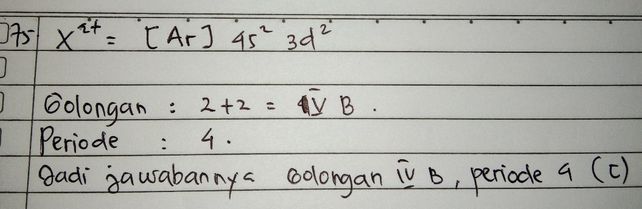 75 X²⁺ = [Ar] 4s² 3d²
Golongan : 2+2 = IV B.
Periode : 4.
Jadi jawabannya Golongan IV B, periode 4 (C)